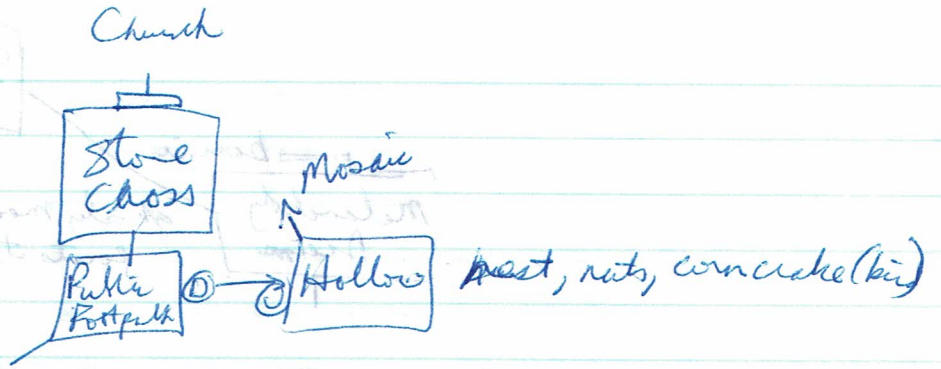 Church
Stone
Cross
Mosaic
Public
Footpath
D
Hollow
nest, nuts, corncrake (bird)